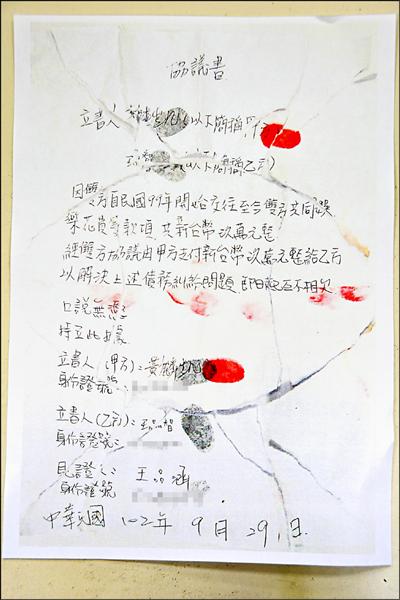 協議書
立書人 以下簡稱甲方
以下簡稱乙方)
因雙方自民國99年開始交往至今雙方共同娛
樂花費等款項 共新台幣 萬元整
經雙方協議由甲方支付新台幣 萬元整給乙方
以解決上述債務糾紛問題 即日起互不相欠
口說無憑
特立此據
立書人(甲方):黃
身份證號:
立書人(乙方):王品智
身份證號:
見證人: 王品涵
身份證號
中華民國 102年 9月 29日